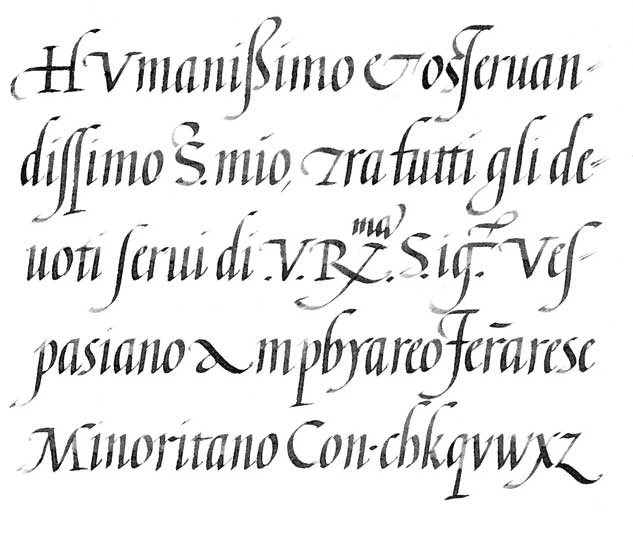 Humanißimo & osseruan-
dissimo S. mio, Tra tutti gli de-
uoti serui di .V. R.ma S.ig. Ves-
pasiano Amphyareo Ferrarese
Minoritano Con·chkqvwxz